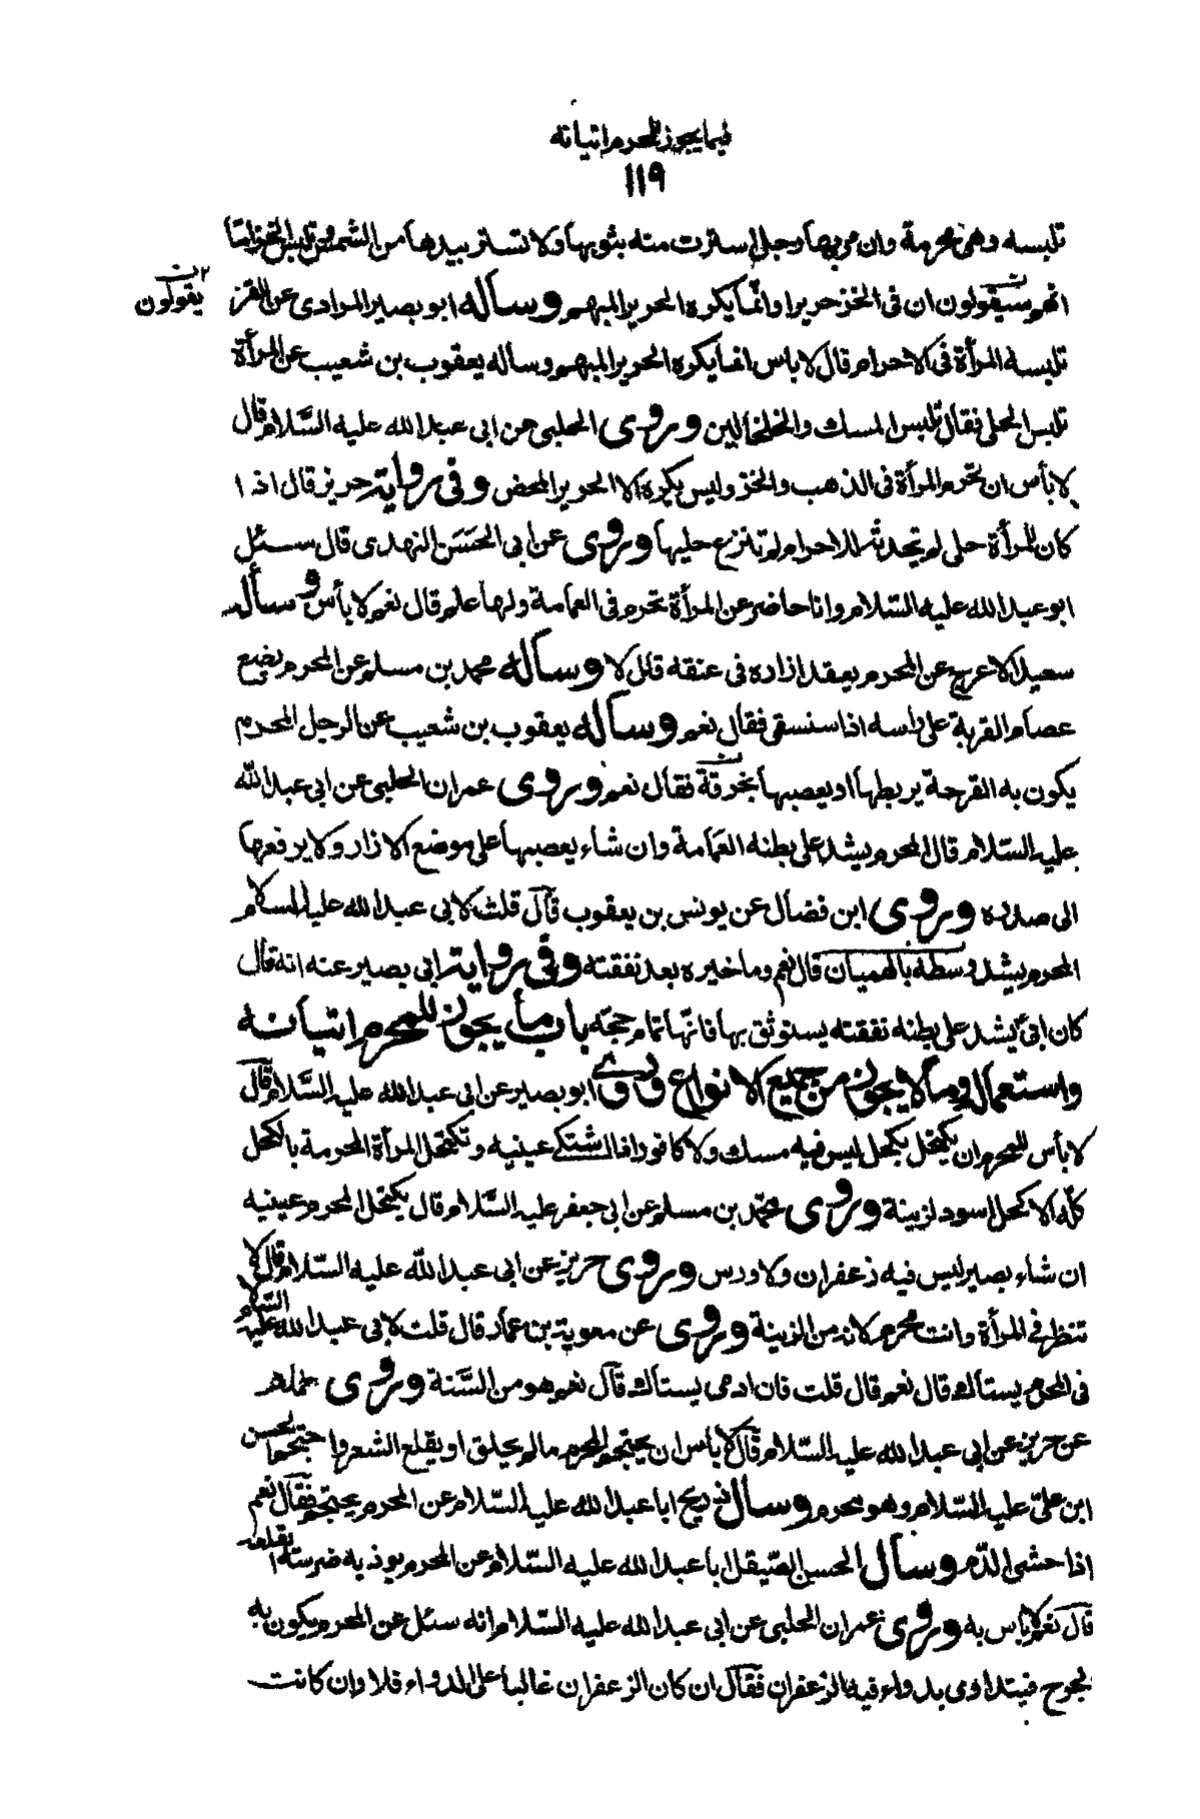 فيما يجوز للمحرم اتيانه
١١٩
تلبسه وهى محرمة وان مر بها رجل استترت منه بثوبها ولا تستتر بيدها من الشمس وتلبس الخز اما
انهم سيقولون ان فى الخز حريرا وانّما يكره الحرير المبهم وسأله ابو بصير المرادى عن القز
٢ ن يقولون
تلبسه المرأة فى الاحرام قال لا باس انما يكره الحرير المبهم وساله يعقوب بن شعيب عن المرأة
تلبس الحلى فقال تلبس المسك والخلخالين وروى الحلبى عن ابى عبد الله عليه السَّلام قال
لا بأس ان تحرم المرأة فى الذهب والخز وليس يكره الا الحرير المحض وفى رواية حريز قال اذا
كان للمرأة حلى لم تحدثه للاحرام لم تنزع حليها وروى عن ابى الحَسَن النهدى قال سئل
ابو عبد الله عليه السّلام وانا حاضر عن المرأة تحرم فى العمامة ولها علم قال نعم لا بأس وسأله
سعيد الاعرج عن المحرم يعقد ازاره فى عنقه قال لا وسأله محمد بن مسلم عن المحرم يضع
عصام القربة على راسه اذا ستسقى فقال نعم وسأله يعقوب بن شعيب عن الرجل المحرم
يكون به القرحة يربطها او يعصبها بخرقة فقال نعم وروى عمران الحلبى عن ابى عبد اللّه
عليه السّلام قال المحرم يشد على بطنه العمامة وان شاء يعصبها على موضع الازار ولا يرفعها
الى صدره وروى ابن فضال عن يونس بن يعقوب قال قلت لابى عبد الله عليه السلام
المحرم يشد وسطه بالهميان قال نعم وما خيره بعد نفقته وفى رواية ابى بصير عنه انه قال
كان ابىّ يشد على بطنه نفقته يستوثق بها فانّها تمام حجّه باب ما يجوز للمحرم اتيانه
واستعماله وما لا يجوز من جميع الانواع روى ابو بصير عن ابى عبد الله عليه السَّلام قال
لا بأس للمحرم ان يكتحل بكحل ليس فيه مسك ولا كافور اذا اشتكى عينيه وتكتحل المرأة المحرمة بالكحل
كلّه الا كحل اسود لزينة وروى محمّد بن مسلم عن ابى جعفر عليه السَّلام قال يكتحل المحرم عينيه
ان شاء بصبر ليس فيه زعفران ولا ورس وروى حريز عن ابى عبد اللّه عليه السّلام قال لا
تنظر فى المرأة وانت محرم لانه من الزينة وروى عن معوية بن عمار قال قلت لابى عبد الله عليه السّلام
فى المحرم يستاك قال نعم قال قلت فان ادمى يستاك قال نعم هو من السَّنة وروى حماد
عن حريز عن ابى عبد الله عليه السّلام قال لا بأس ان يحتجم المحرم ما لم يحلق او يقلع الشعر واحتجم الحسن
ابن علىّ عليه السّلام وهو محرم وسأل ذريح ابا عبد الله عليه السّلام عن المحرم يحتجم فقال نعم
اذا خشى الدّم وسأل الحسن الصّيقل ابا عبد الله عليه السّلام عن المحرم يوذيه ضرسه ايقلعه
قال نعم لا بأس به وروى عمران الحلبى عن ابى عبد الله عليه السّلام انه سئل عن المحرم يكون به
الجرح فيتداوى بدواء فيه الزعفران فقال ان كان الزعفران غالبا على الدواء فلا وان كانت